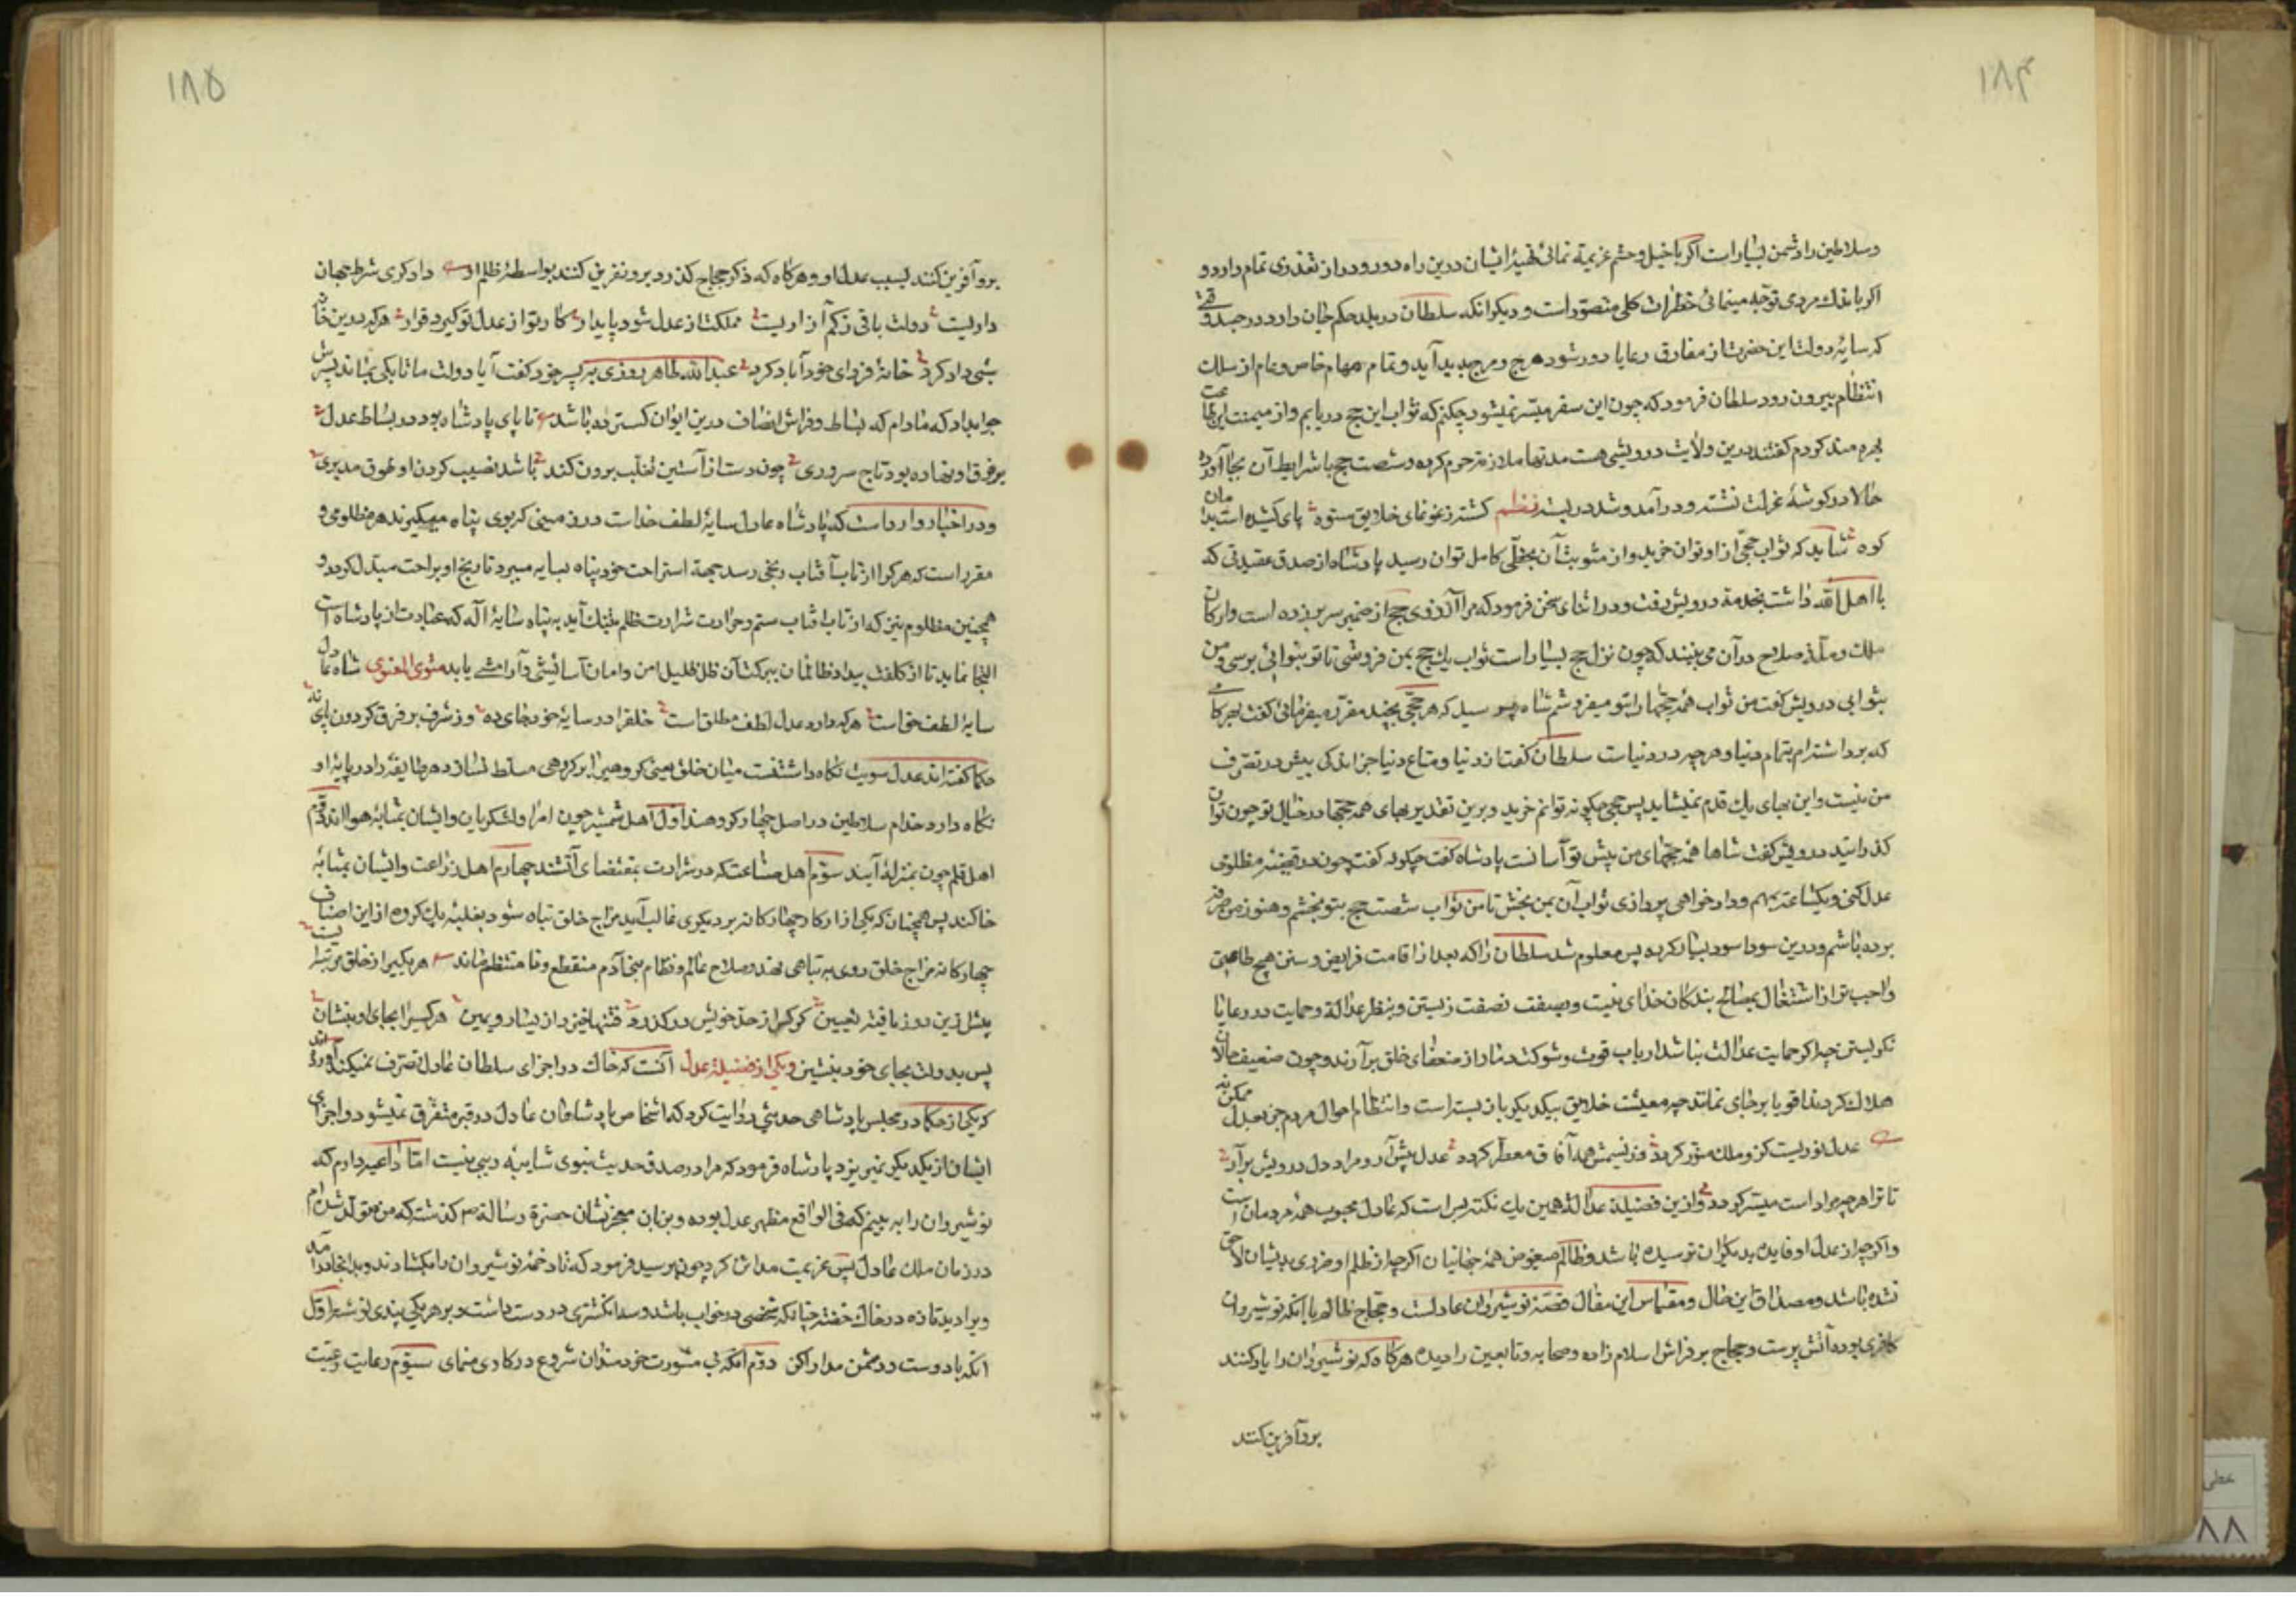 ۱۸۴
و سلاطین را دشمن بسیار است اکر با خیل و حشم عزیمة نمائی تهیهٔ ایشان درین راه دور و دراز تعذری تمام دارد و
اکر باندك مردی توجه مینمائی خطرات کلی متصوّر است و دیکر انکه سلطان در بلد حکم جان دارد در جسد وقتی
که سایهٔ دولت این حضرت از مفارق رعایا دور شود هرج و مرج پدید آید و تمام مهام خاص و عام از سلك
انتظام بیرون رود سلطان فرمود که چون این سفر میسّر نمیشود چکنم که ثواب این حج دریابم و از میمنت این طاعت
بهره مند کردم کفتند درین ولایت درویشی هست مدتها ملازم حرم کرده و شصت حج با شرایط آن بجا آورده
حالا در کوشهٔ عزلت نشسته و در آمد و شد در بسته نظم کشته ز غوغای خلایق ستوه پای کشیده است بدامان
کوه شاید که ثواب حجی از او توان خرید و از مثوبت آن بحظّی کامل توان رسید پادشاه از صدق عقیدتی که
با اهل الله داشت بخدمة درویش رفت و در اثنای سخن فرمود که مرا آرزوی حج از ضمیر سر برزده است و ارکان
ملك و ملة صلاح در آن می بینند که چون نزل حج بسیار است ثواب یك حج بمن فروشی تا تو بنوائی برسی و من
بثوابی درویش کفت من ثواب همهٔ حجّها را بتو میفروشم شاه پرسید که هر حجّی بچند مقرّر میفرمائی کفت بهر کامی
که برداشته ام تمام دنیا و هر چه در دنیاست سلطان کفت از دنیا و متاع دنیا جز اندکی بیش در تصرّف
من نیست و این بهای یك قدم نمیشاید پس حجی چکونه توانم خرید و برین تقدیر بهای همه حجّها در خیال تو چون توان
کذرانید درویش کفت شاها همه حجّهای من پیش تو آسانست پادشاه کفت چکونه کفت چون در قضیهٔ مظلومی
عدل کنی و یکساعت بمهم دادخواهی پردازی ثواب آن بمن بخش تا من ثواب شصت حج بتو بخشم و هنوز من صرفه
برده باشم و درین سودا سود بسیار کرده پس معلوم شد سلطان را که بعد از اقامت فرایض و سنن هیچ طاعتی
واجب تر از اشتغال بمصالح بندکان خدای نیست و بصفت نصفت زیستن و بنظر عدالة و حمایت در رعایا
نکریستن چه اکر حمایت عدالت نباشد ارباب قوت و شوکت دمار از ضعفای خلق برآرند و چون ضعیف حالان
هلاك کردند اقویا برجای نمانند چه معیشت خلایق بیکدیکر باز بسته است و انتظام احوال مردم جز بعدل ممکن نه
عدل نوریست کزو ملك منوّر کردد وز نسیمش همه آفاق معطّر کردد عدل پیش آر و مراد دل درویش برآر
تا ترا هر چه مراد است میسّر کردد و از ین فضیلة عدالة همین یك نکته بس است که عادل محبوب همهٔ مردمان است
و اکر چه از عدل او فایده بدیکران نرسیده باشد و ظالم مبغوض همهٔ جهانیان اکر چه از ظلم او ضرری بدیشان لاحق
نشده باشد و مصداق این حال و مقیاس این مقال قصّهٔ نوشیروان عادلست و حجّاج ظالم با آنکه نوشیروان
کافری بوده آتش پرست و حجاج بر فراش اسلام زاده و صحابه و تابعین را دیده هرکاه که نوشیروان را یاد کنند
برو آفرین کنند
۱۸۵
برو آفرین کنند بسبب عدل او و هرکاه که ذکر حجاج کذرد برو نفرین کنند بواسطهٔ ظلم او دادکری شرط جهان
داریست دولت باقی ز کم آزاریست مملکت از عدل شود پایدار کار تو از عدل تو کیرد قرار هر که درین خانه
شبی داد کرد خانهٔ فردای خود آباد کرد عبدالله طاهر روزی به پسر خود کفت آیا دولت ما تا بکی بماند پسرش
جواب داد که مادام که بساط و فراش انصاف درین ایوان کسترده باشد تا پای پادشاه بود در بساط عدل
بر فرق او نهاده بود تاج سروری چون دست از آستین تغلب برون کند باشد نصیب کردن او طوق مدبری
و در اخبار وارد است که پادشاه عادل سایهٔ لطف خداست در روی زمینی که بوی پناه میکیرند هر مظلومی و
مقرر است که هر کرا از تاب آفتاب رنجی رسد جهة استراحت خود پناه بسایه میبرد تا رنج او براحت مبدّل کردد و
همچنین مظلوم نیز که از تاب آفتاب ستم و حرارت شرارت ظلم بتنك آید به پناه سایهٔ اله که عبارت از پادشاه است
التجا نماید تا از کلفت بیداد ظالمان ببرکت آن ظل ظلیل امن و امان آسایشی و آرامشی یابد مثنوی المعنوی شاه عادل
سایهٔ لطف حق است هر که دارد عدل لطف مطلق است خلق را در سایهٔ خود جای ده وز شرف بر فرق کردون پای نه
حکما کفته اند عدل سویت نکاه داشتنست میان خلق یعنی کروهی را بر کروهی مسلط نسازد هر طایفه را در پایهٔ او
نکاه دارد خدام سلاطین در اصل چهار کروهند اوّل اهل شمشیر چون امرا و لشکریان و ایشان بمثابهٔ هوااند دوّم
اهل قلم چون بمنزلهٔ آبند سوّم اهل صناعت که در شرارت بمقتضای آتشند چهارم اهل زراعت و ایشان بمثابهٔ
خاکند پس همچنان که یکی از ارکان چهارکانه بر دیکری غالب آید مزاج خلق تباه شود بغلبهٔ یك کروه از این اصناف
چهارکانه مزاج خلق روی به تباهی نهد و صلاح عالم و نظام بنی آدم منقطع و نا منتظم ماند هر یکی را ز خلق مرتبه ایست
پیش ازین روز یافته تعیین کر کس از حدّ خویش در کذرد فتنها خیزد از یسار و یمین هر کسی را بجای او بنشان
پس بدولت بجای خود بنشین و یکی از فضیلة عدل آنست که خاك در اجزای سلطان عادل تصرّف نمیکند آورده اند
که یکی از حکما در مجلس پادشاهی حدیثی روایت کرد که اشخاص پادشاهان عادل در قبر متفرّق نمیشود و اجزای
ایشان از یکدیکر نمیریزد پادشاه فرمود که مرا در صدق حدیث نبوی شایبهٔ ریبی نیست امّا داعیه دارم که
نوشیروان را به بینم که فی الواقع مظهر عدل بوده و بزبان معجزنشان حضرة رسالة ص کذشته که من متولد شده ام
در زمان ملك عادل پس عزیمت مداین کرد چون برسید فرمود که تا دخمهٔ نوشیروان را بکشادند و بدانجا درآمد
ویرا دید تازه در خاك خفته چنانکه شخصی در خواب باشد و سه انکشتری در دست داشت و بر هر یکی پندی نوشته اوّل
انکه با دوست و دشمن مدارا کن دوّم انکه بی مشورت خردمندان شروع در کاری منمای سیّوم رعایت رعیّت